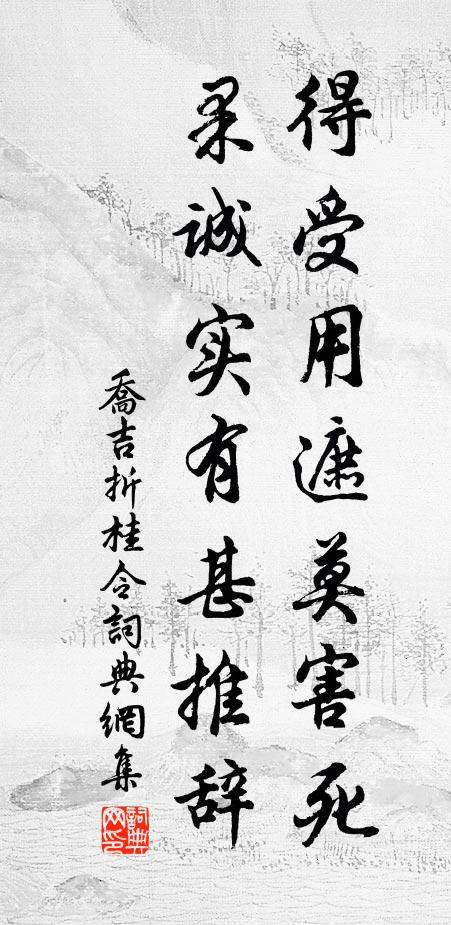 得受用遮莫害死
果诚实有甚推辞
喬吉折桂令詞典網集
詞典
网印